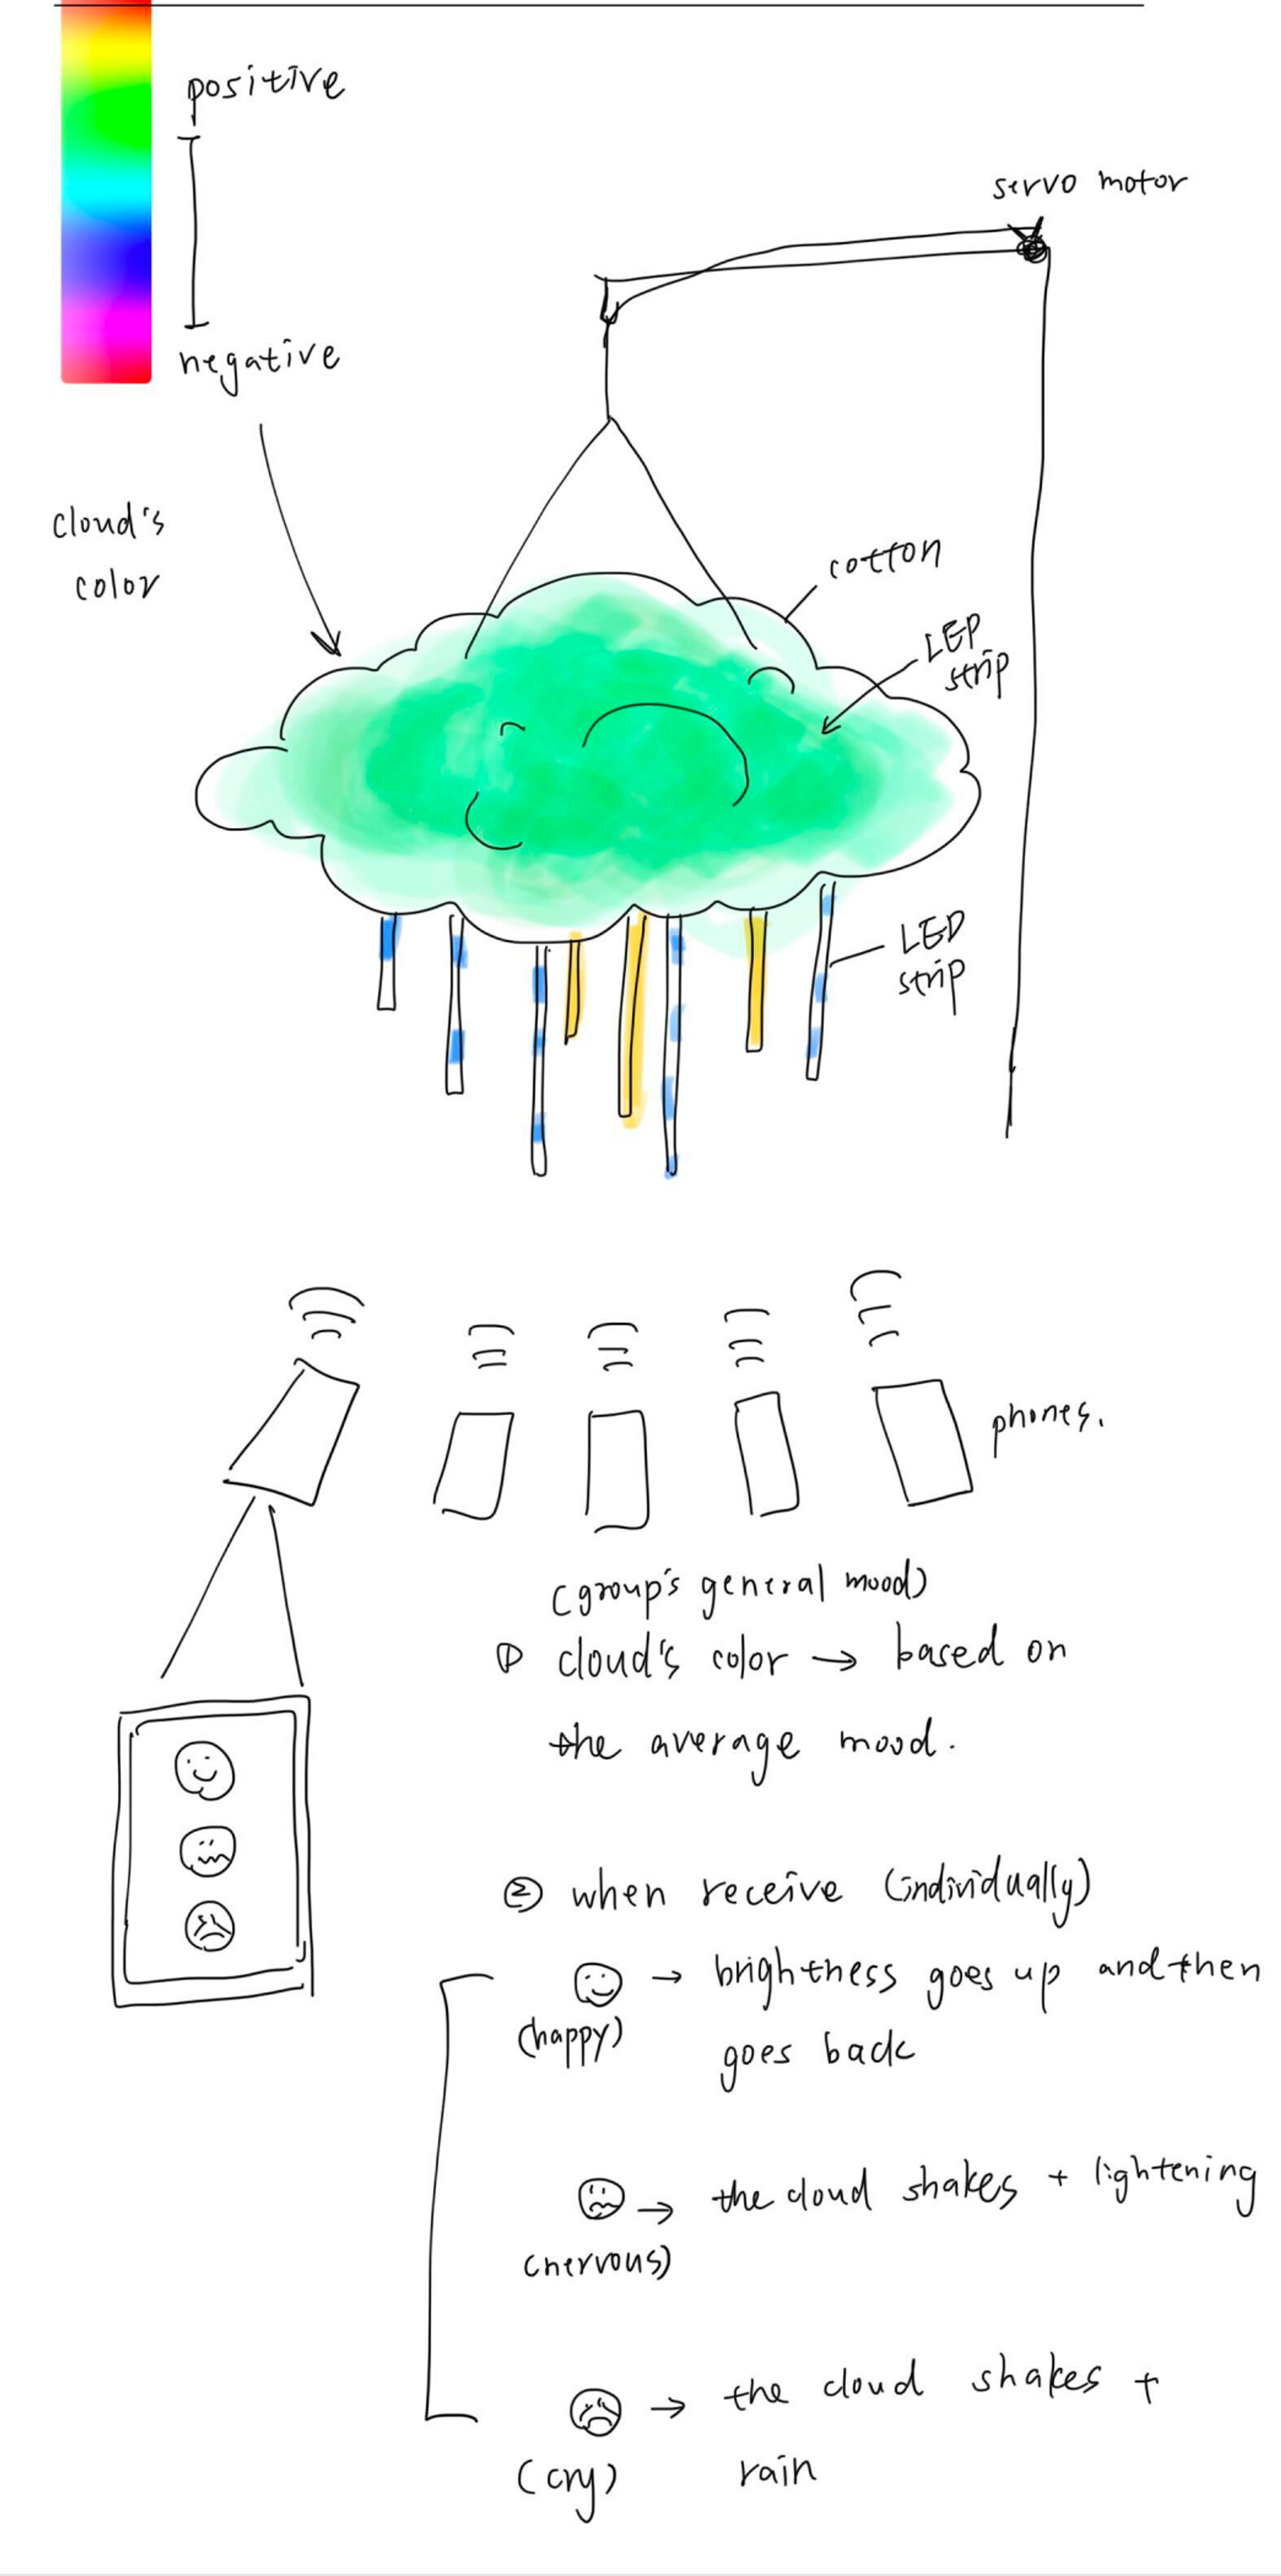 positive
servo motor
negative
cloud's
color
cotton
LED
strip
LED
strip
phones.
(group's general mood)
① cloud's color → based on
the average mood.
② when receive (individually)
→ brightness goes up and then
(happy)
goes back
→ the cloud shakes + lightening
(nervous)
→ the cloud shakes +
(cry)
rain